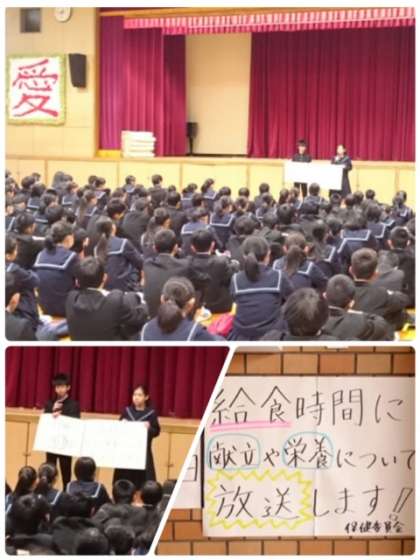 愛
給食時間に
献立や栄養について
放送します!!
保健委員会